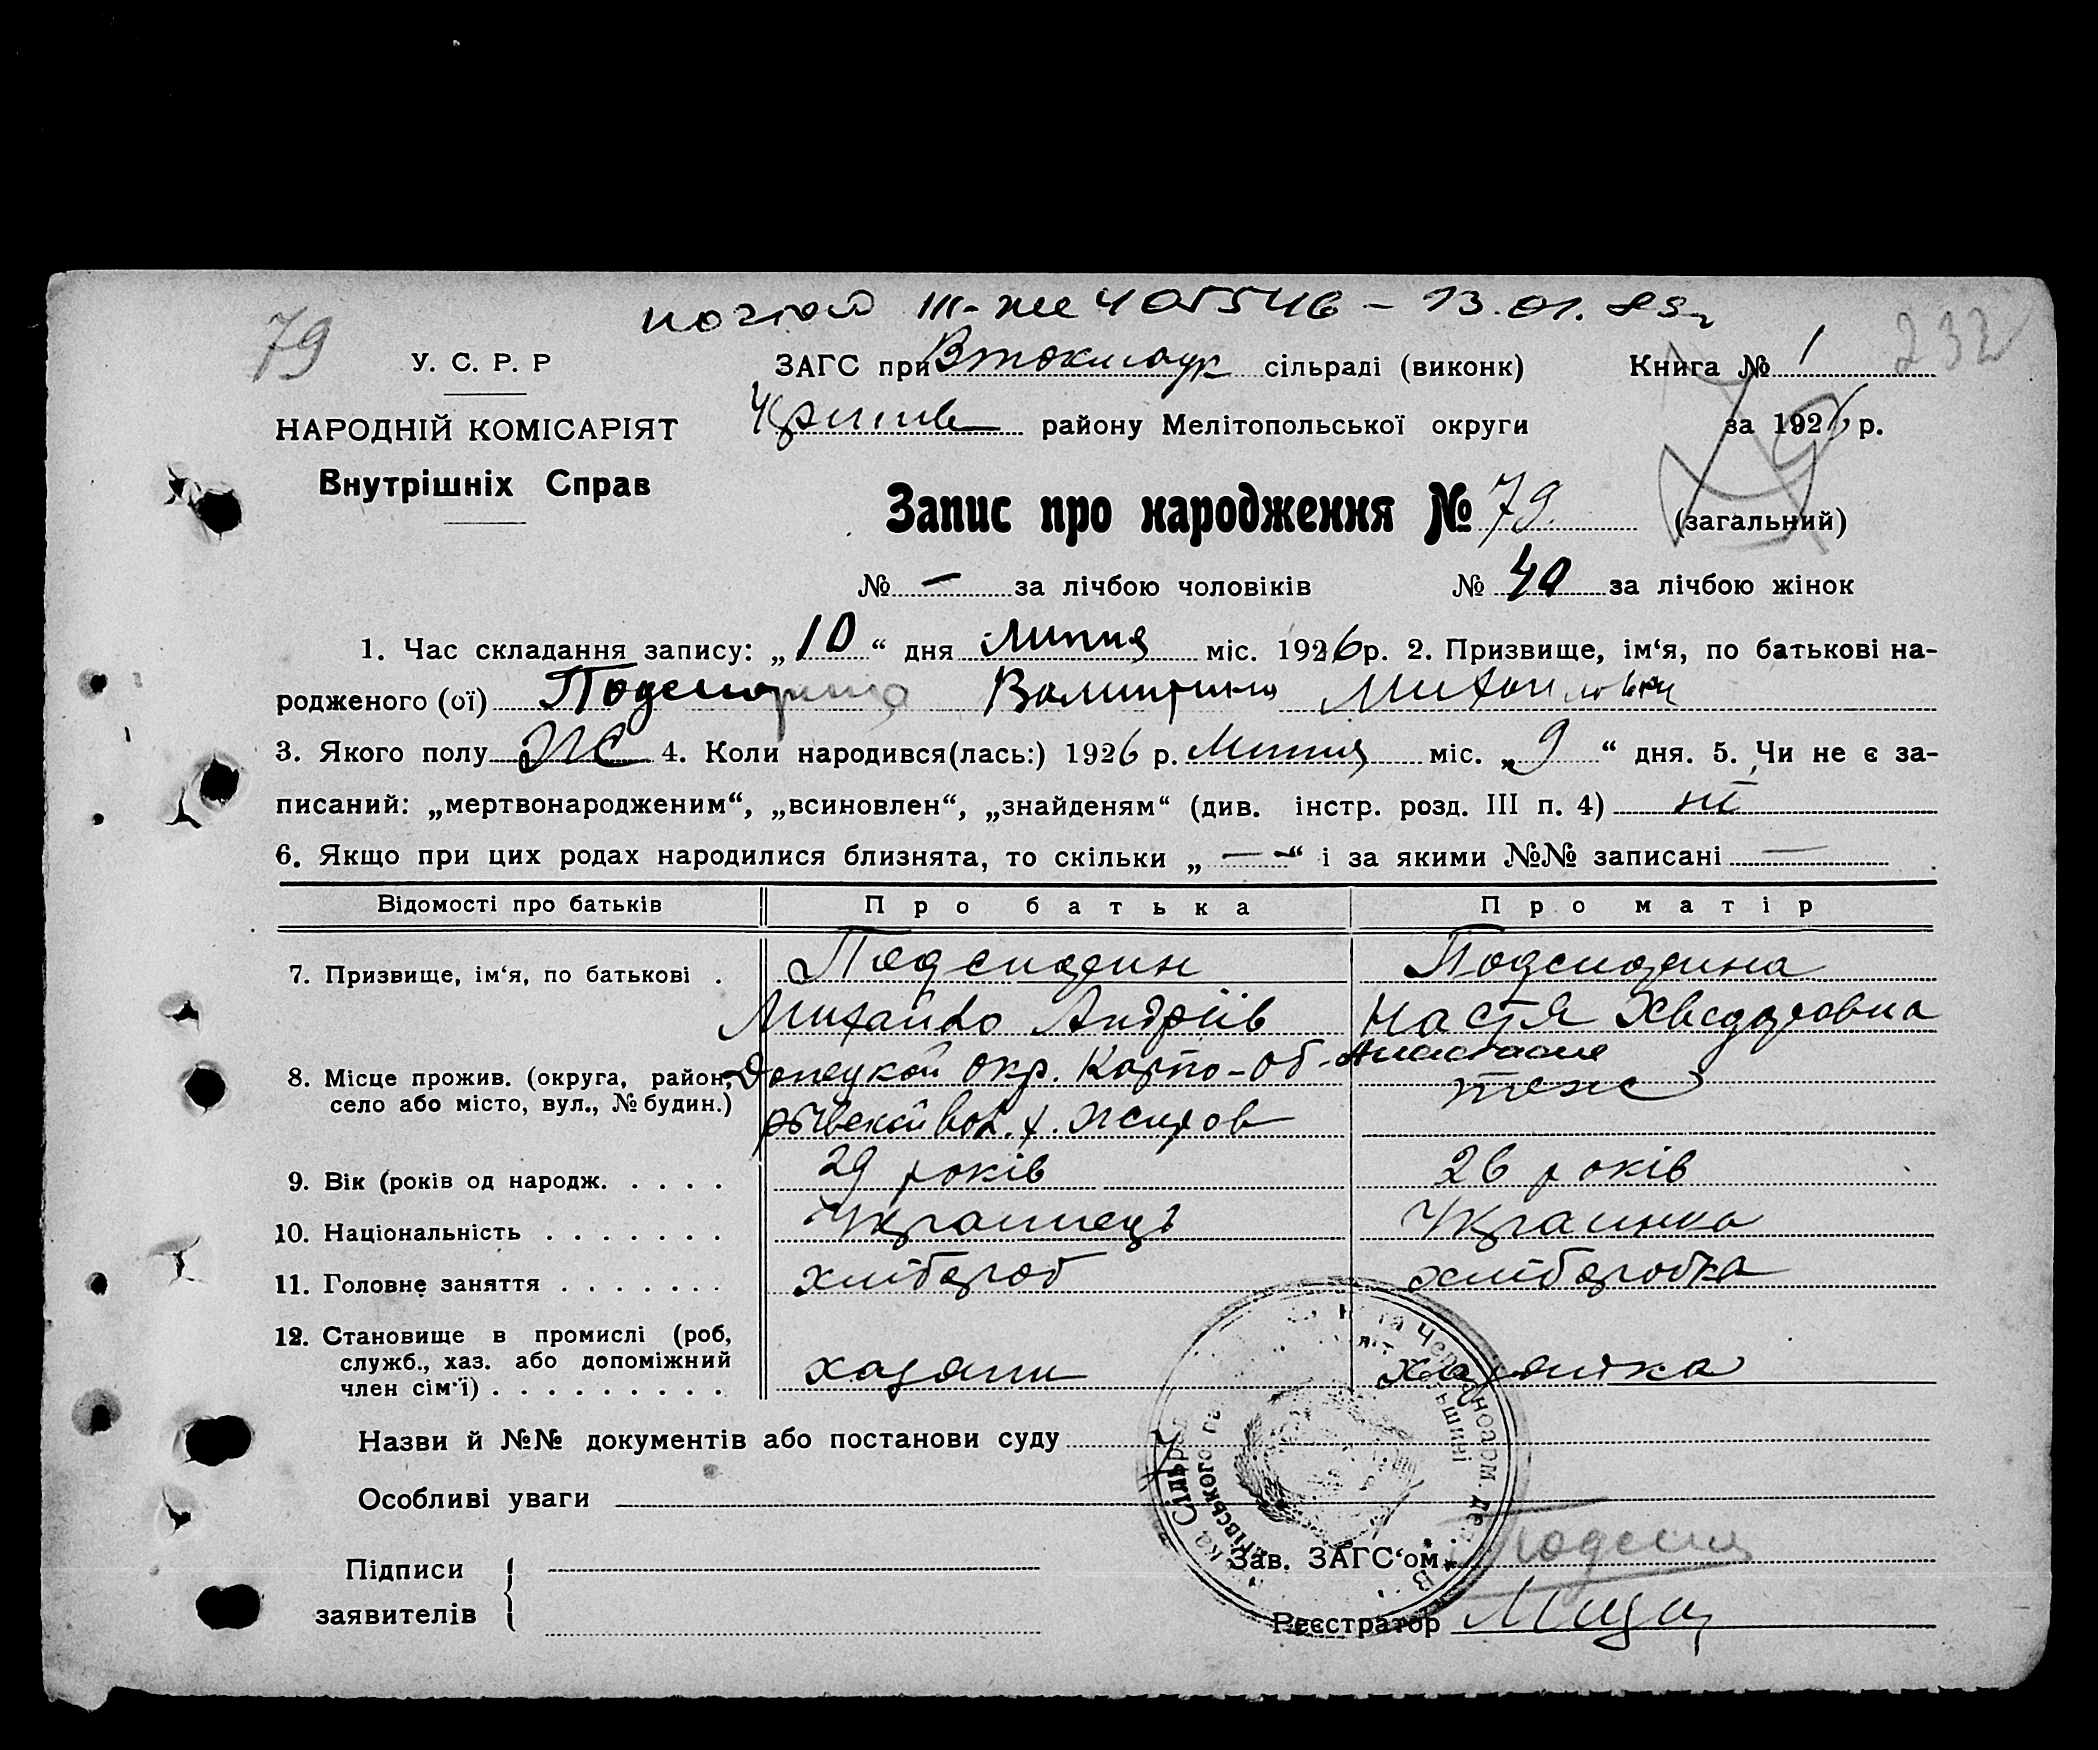 79
III-ЖС 405546 - 13.01.83г
232
У. С. Р. Р
ЗАГС при Втокмаук сільраді (виконк)
Книга № 1
НАРОДНІЙ КОМІСАРІЯТ
району Мелітопольської округи
за 1926 р.
79
Внутрішніх Справ
Запис про народження № 79 (загальний)
№ — за лічбою чоловіків № 40 за лічбою жінок
1. Час складання запису: „10“ дня Липня міс. 1926 р. 2. Призвище, ім‘я, по батькові на-
родженого (ої) Валинтина Михайловна
3. Якого полу ЖС 4. Коли народився(лась:) 1926 р. Липня міс. „9“ дня. 5. Чи не є за-
писаний: „мертвонародженим“, „всиновлен“, „знайденям“ (див. інстр. розд. III п. 4) ні
6. Якщо при цих родах народилися близнята, то скільки „ — “ і за якими №№ записані —
Відомості про батьків
Про батька
Про матір
7. Призвище, ім‘я, по батькові .
Подсмодин
Подсмодина
Михайло Андріїв
Настя Хведоровна
Анастасия
8. Місце прожив. (округа, район,
село або місто, вул., № будин.)
Донецкой окр. вол. х.
тоже
9. Вік (років од народж. . . . .
29 років
26 років
10. Національність . . . . . . .
Украинець
Украинка
11. Головне заняття . . . . . . .
хлібороб
хліборобка
12. Становище в промислі (роб,
служб., хаз. або допоміжний
член сім‘ї) . . . . . . . . .
хазяин
хазяйка
Назви й №№ документів або постанови суду
Особливі уваги
Підписи
заявителів
Зав. ЗАГС‘ом
Реєстратор